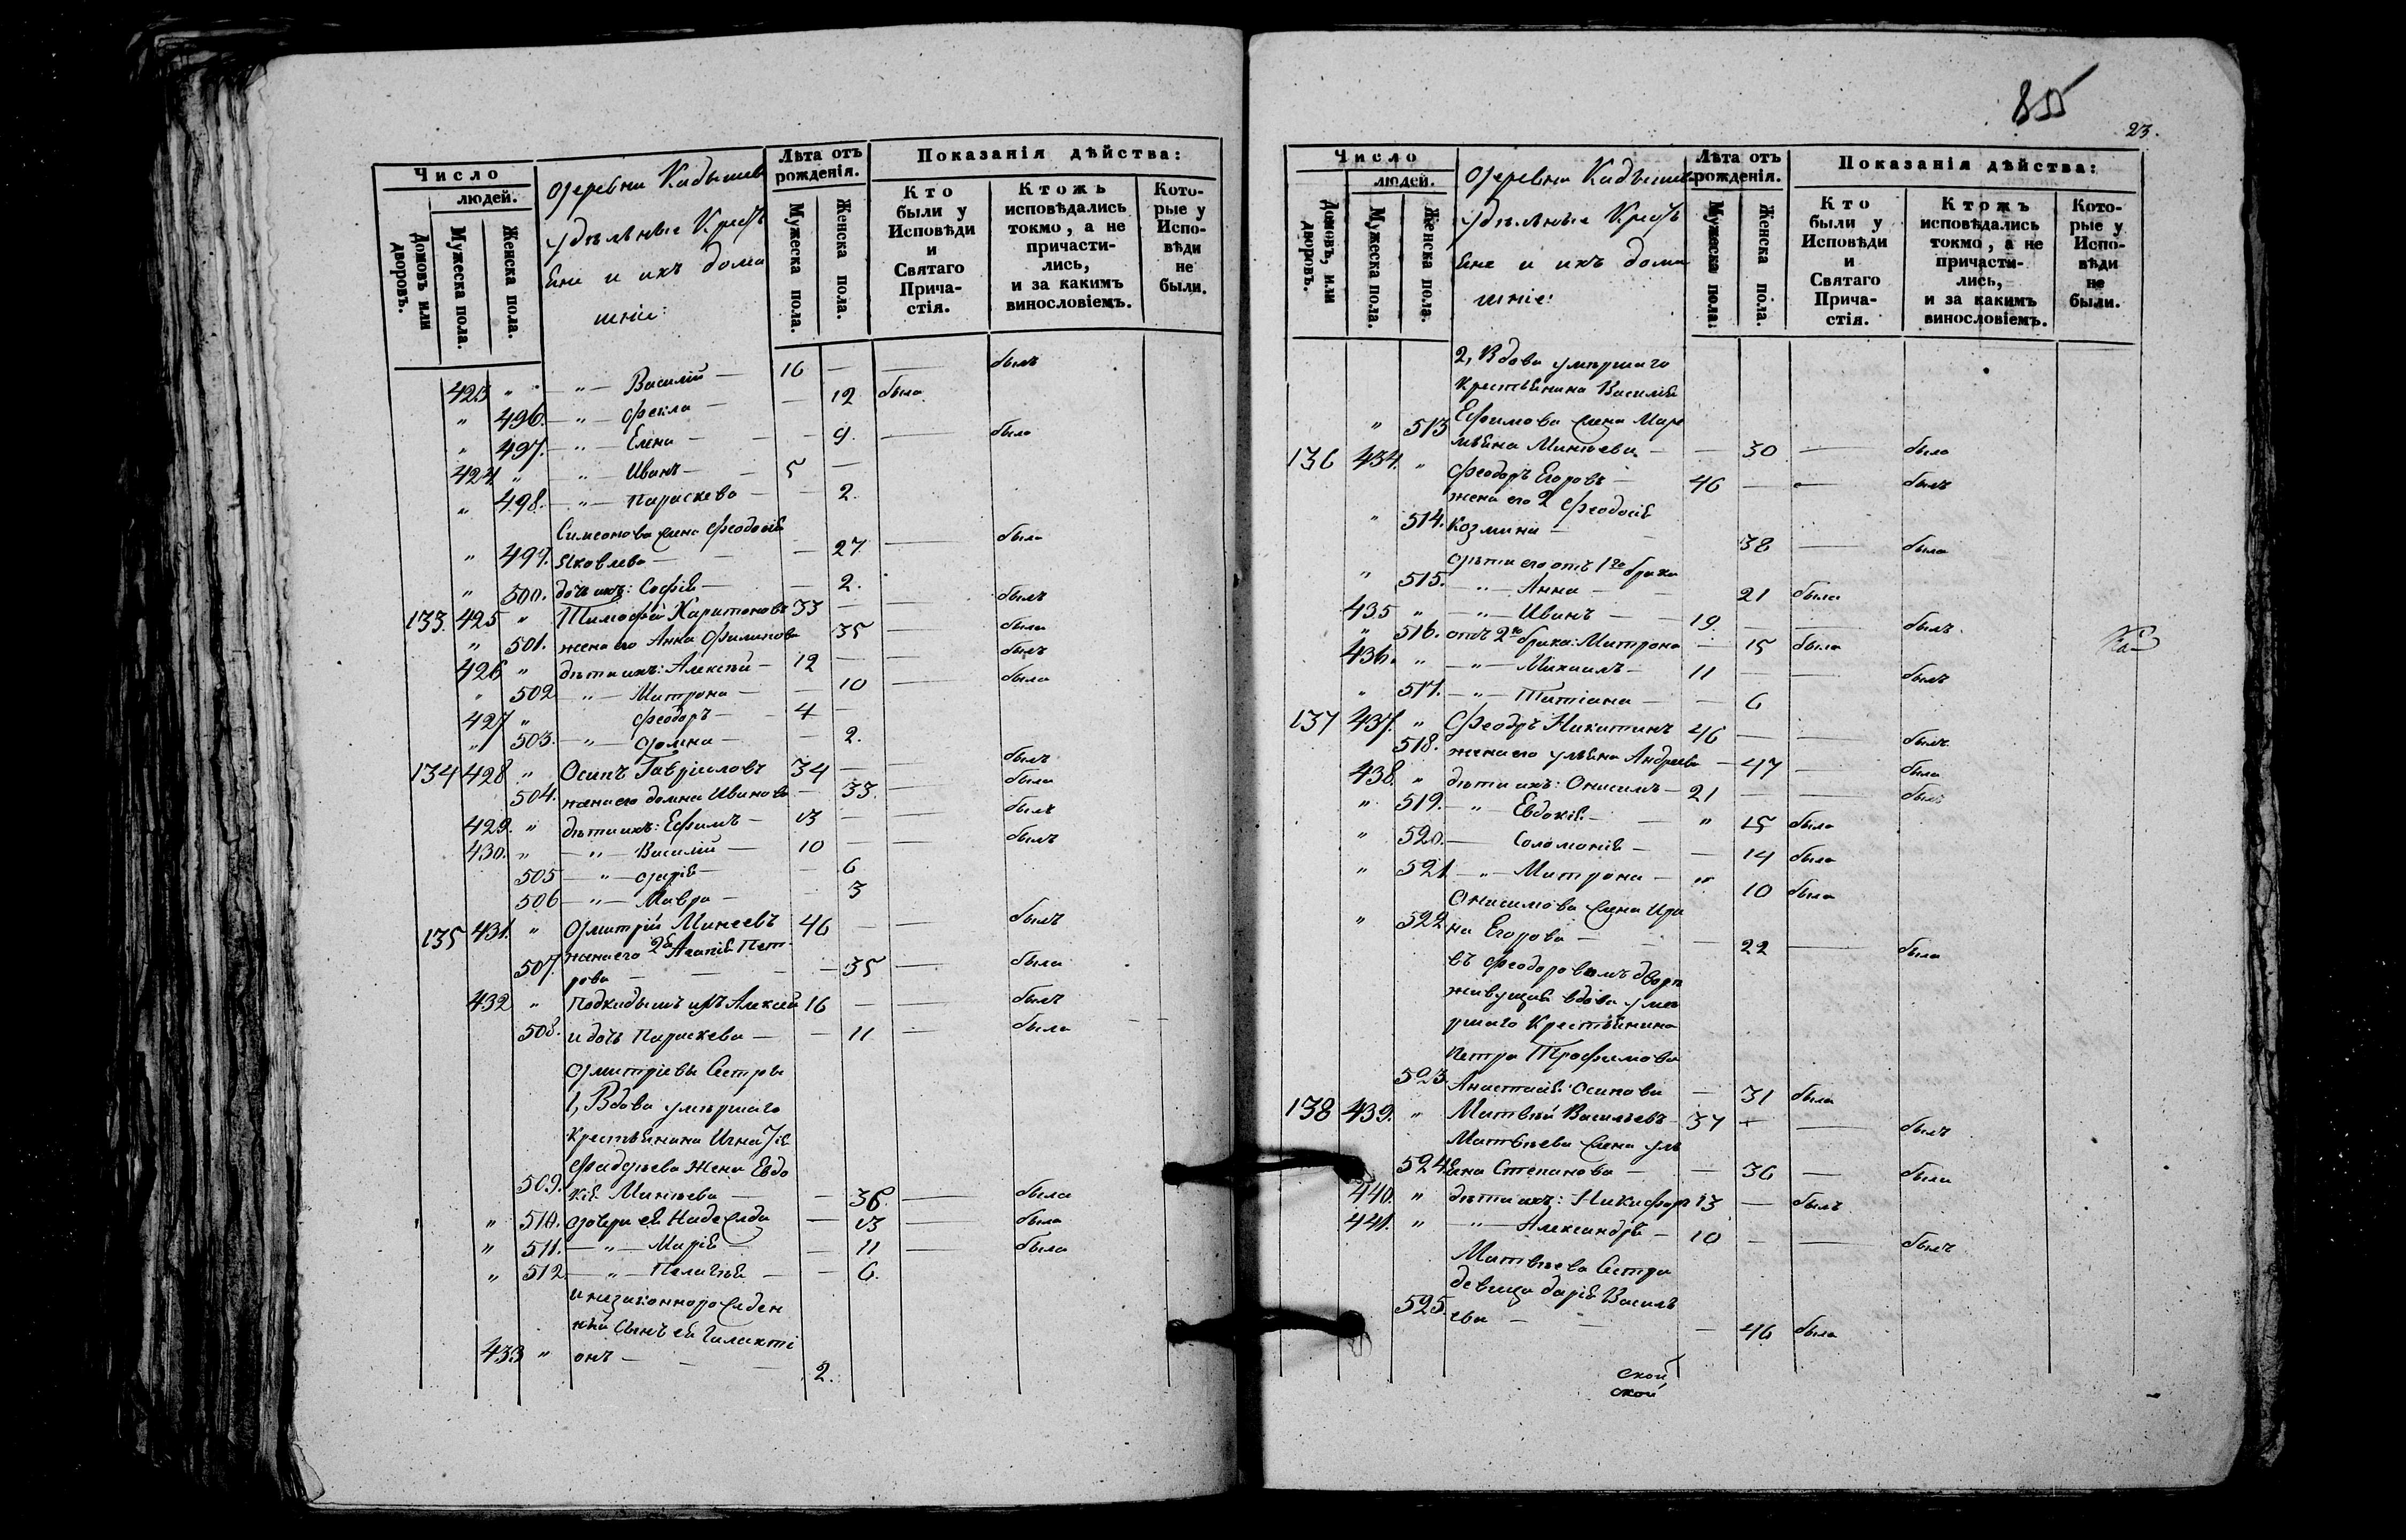 Число
людей.
Домовъ или дворовъ.
Мужеска пола.
Женска пола.
Деревни Кадышев
удѣльные Крестъ
яне и ихъ дома
шніе:
Лѣта отъ рожденія.
Мужеска пола.
Женска пола.
Показанія дѣйства:
Кто были у Исповѣди и Святаго Прича- стія.
Ктожъ исповѣдались токмо, а не причасти- лись, и за какимъ винословіемъ.
Кото- рые у Испо- вѣди не были.
423 " " — Василій — 16 — — былъ
" 496. — " — Фекла — — 12 была
" 497. — " — Елена — — 9. — была
424 " " — Иванъ — — 5 —
" 498. — " — Параскева — — 2.
Симеонова жена Феодосія
" 499. Яковлева — — — 27 — была
" 500. дочь ихъ: Софія — — 2.
133. 425 " Тимофей Харитоновъ 33 — — былъ
" 501. жена его Анна Филипова 35 — была
426 " дѣти ихъ: Алексѣй — 12 — — былъ
" 502 — " — Матрона — — 10 — была
427 " Феодоръ — 4 —
" 503. — " — Домна — — 2.
134 428 " Осипъ Гавриловъ 34 — — былъ
504. жена его домна Иванова — 33. — была
429. " дѣти ихъ: Ефимъ — 13 — — былъ
430. " — " — Василій — 10 — — былъ
505 — " — Дарія — — 6
506 — " — Мавра — — 3
135 431. " Дмитрій Минеевъ 46 — — былъ
жена его 2я Агапія Пет-
507. рова — — — — 35 — была
432 " Подкидышъ ихъ Алексѣй 16 — — былъ
508. и дочь Параскева — — 11 — была
Дмитріевы Сестры
1, Вдова умершаго
крестьянина Игнатія
Фадѣева жена Евдо
509. кія Минѣева — — 36. — была
" 510. Дочери ея Надежда — 13 — была
" 511. — " — Марія — — 11 — была
" 512. — " — Пелагія — — 6.
и незаконнорожден
ный сынъ ея Галакті
433 " онъ — — — 2.
855
23.
Число
людей.
Домовъ, или дворовъ.
Мужеска пола.
Женска пола.
Деревни Кадышев
удѣльные Крестъ
яне и ихъ дома
шніе:
Лѣта отъ рожденія.
Мужеска пола:
Женска пола.
Показанія дѣйства:
Кто были у Исповѣди и Святаго Прича- стія.
Ктожъ исповѣдались токмо, а не причасти- лись, и за какимъ винословіемъ.
Кото- рые у Испо- вѣди не были.
2, Вдова умершаго
крестьянина Василія
" 513 Ефимова жена Мар
мьяна Минѣева — — 30 — была
136 434. " Феодоръ Егоровъ — 46 — — былъ
жена его 2 Феодосія
" 514. Козмина — — 38 — была
дѣти его отъ 1го брака
" 515. — " — Анна — — 21 была
435 " — " — Иванъ — — 19. — — былъ.
" 516. отъ 2го брака: Матрона — 15 была
436. " — " — Михаилъ — 11 — — былъ
" 517. — " — Татіана — — 6
137 437. " Феодръ Никитинъ 46 — — былъ
518. жена его ульяна Андреева — 47 — была
438. " дѣти ихъ: Онисимъ — 21 — — былъ
" 519. — " — Евдокія — — " 15 была
" 520. — Соломонія — — 14 была
" 521 — " — Матрона — " 10 была
Онисимова жена Ири
" 522 на Егорова — — — 22 — была
въ Феодоровомъ дворѣ
живущая вдова уме
ршаго Крестьянина
Петра Трофимова
523. Анастасія Осипова — 31 была
138 439. " Матвѣй Васильевъ — 37 — — былъ
Матвѣева жена уль
524. яна Степанова — — 36 — была
440. " дѣти ихъ: Никифоръ 13 — былъ
441. " — " — Александръ — 10 — — былъ
Матвѣева Сестра
девица дарія Василь
525. ева — — — 46 была
ской
ской